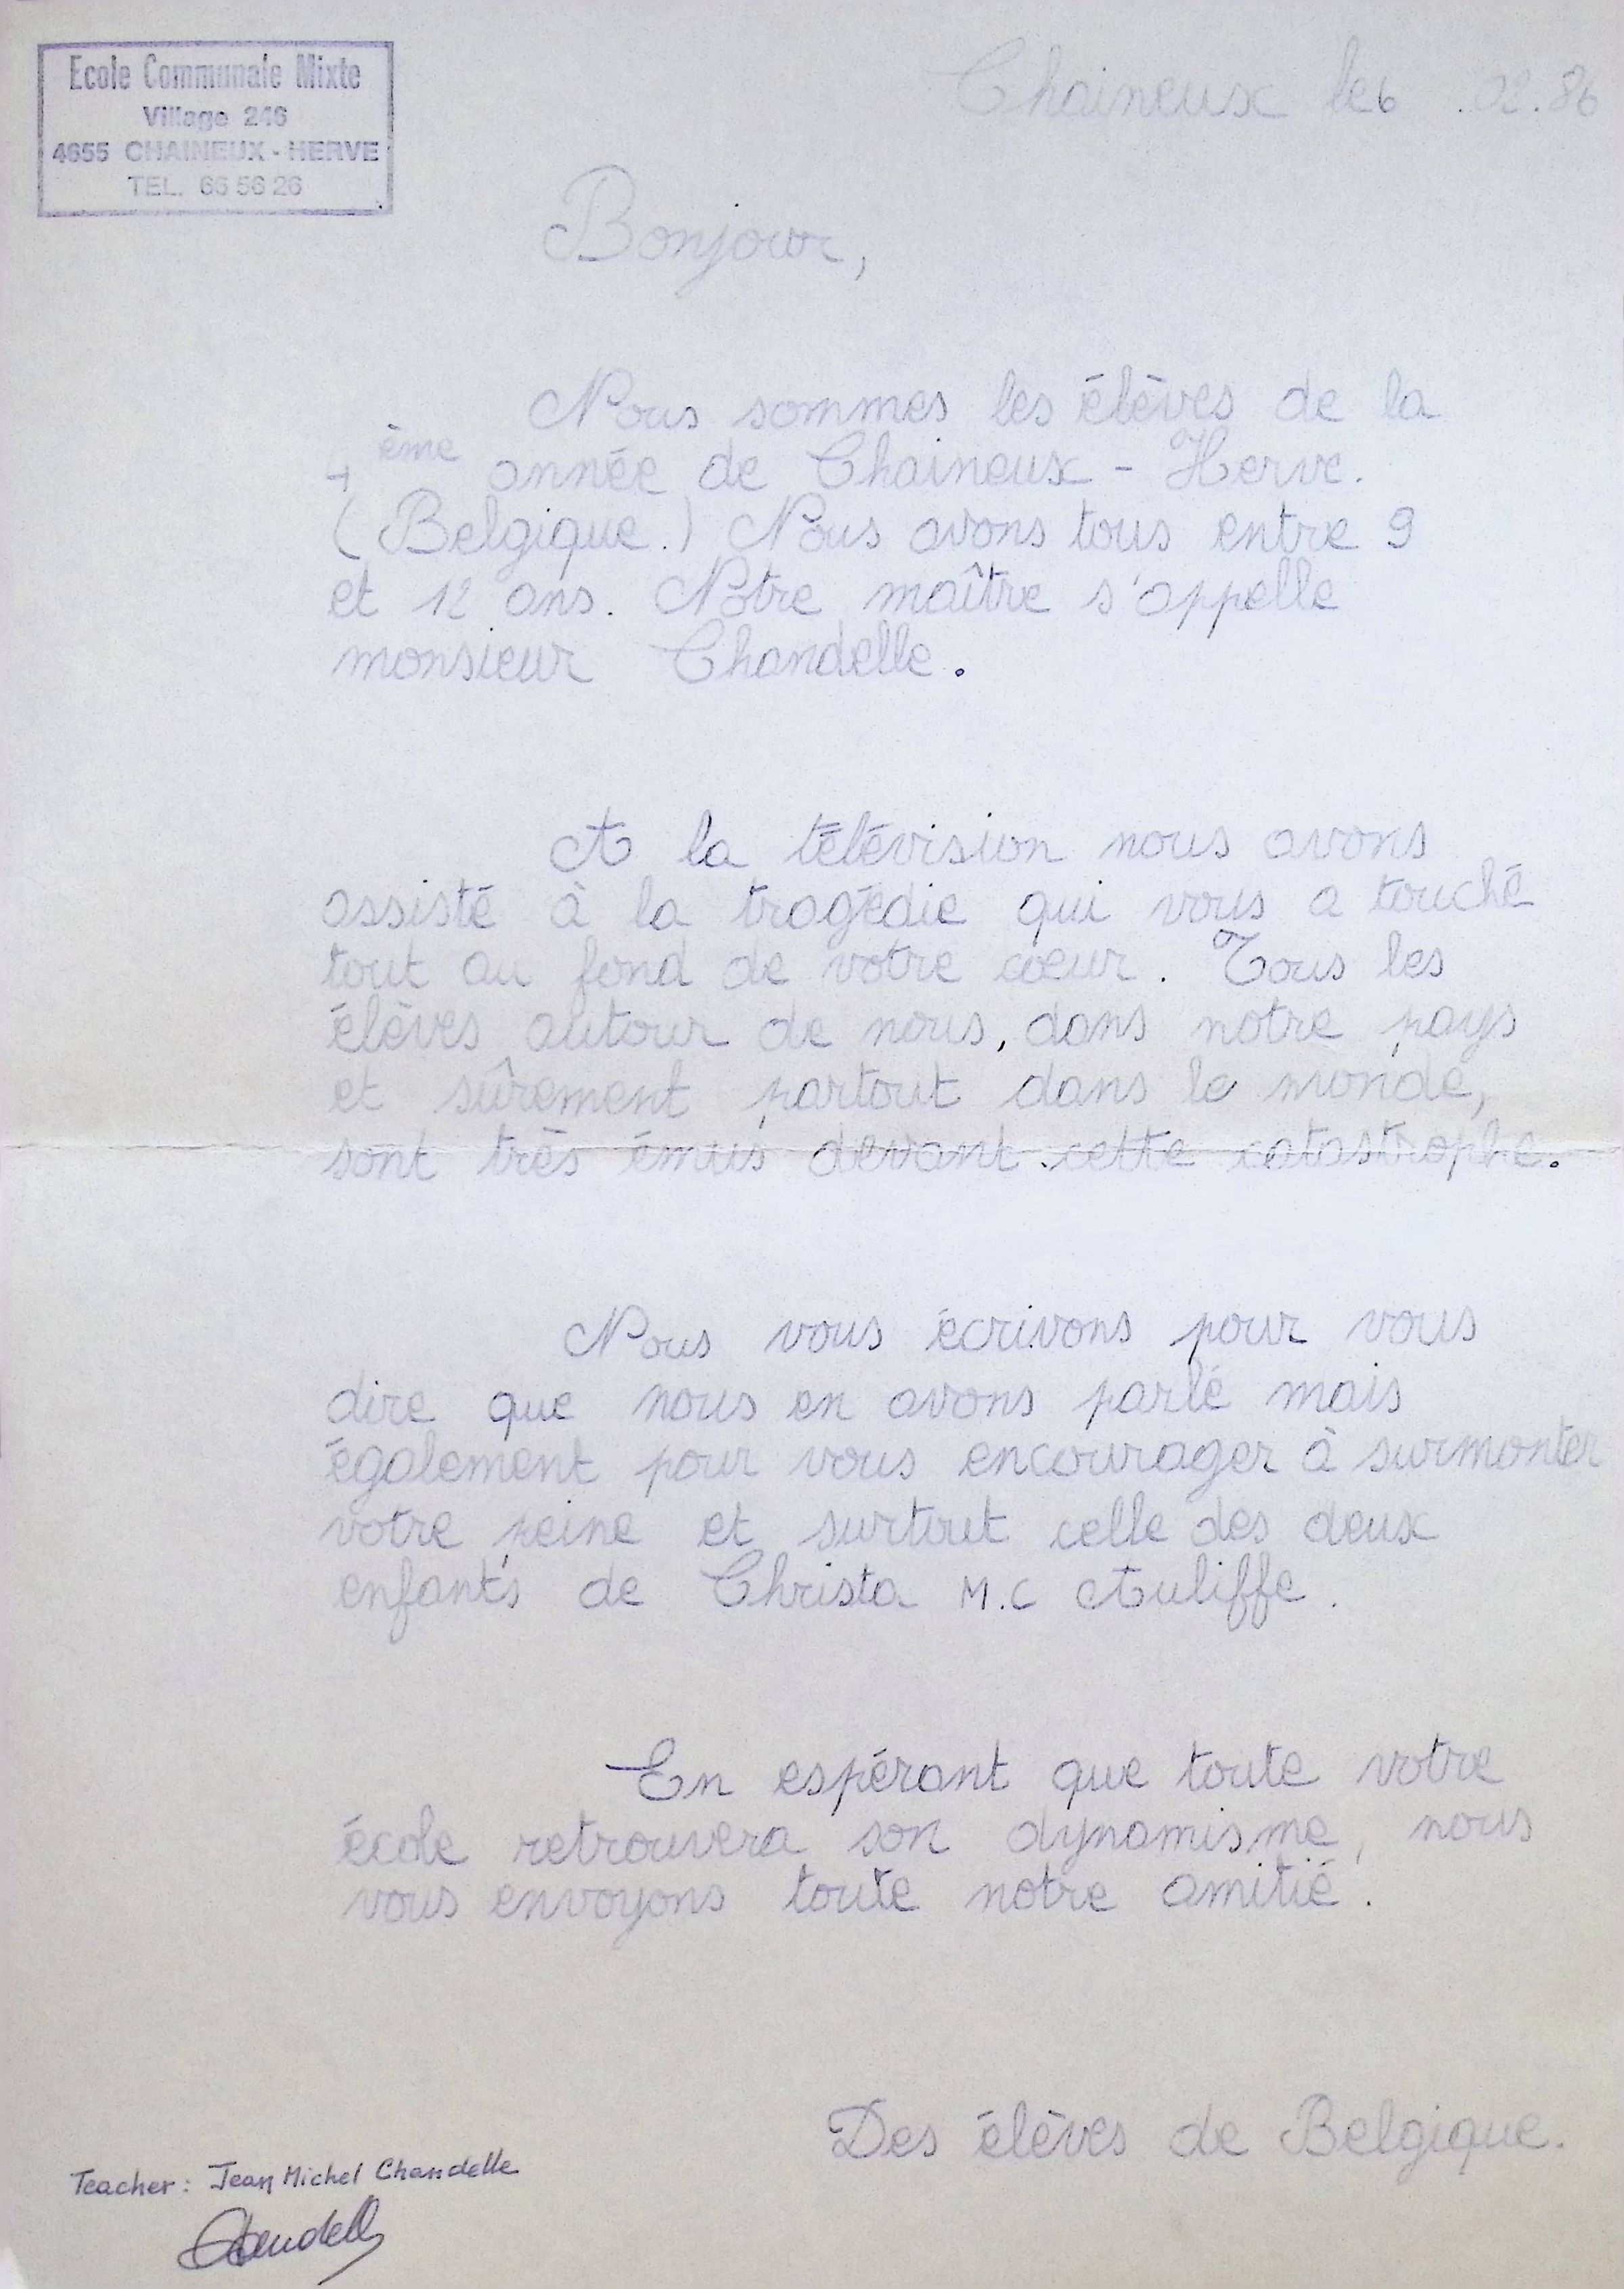 Ecole Communale Mixte
Village 246
4655 CHAINEUX - HERVE
TEL. 66 56 26
Chaineux le 6 .02.86
Bonjour,
Nous sommes les élèves de la
4ème année de Chaineux - Herve.
(Belgique.) Nous avons tous entre 9
et 12 ans. Notre maître s'appelle
monsieur Chandelle.
A la télévision nous avons
assisté à la tragédie qui vous a touché
tout au fond de votre cœur. Tous les
élèves autour de nous, dans notre pays
et sûrement partout dans le monde,
sont très émus devant cette catastrophe.
Nous vous écrivons pour vous
dire que nous en avons parlé mais
également pour vous encourager à surmonter
votre peine et surtout celle des deux
enfants de Christa M.C Auliffe.
En espérant que toute votre
école retrouvera son dynamisme, nous
vous envoyons toute notre amitié.
Des élèves de Belgique.
Teacher: Jean Michel Chandelle
Chandelle